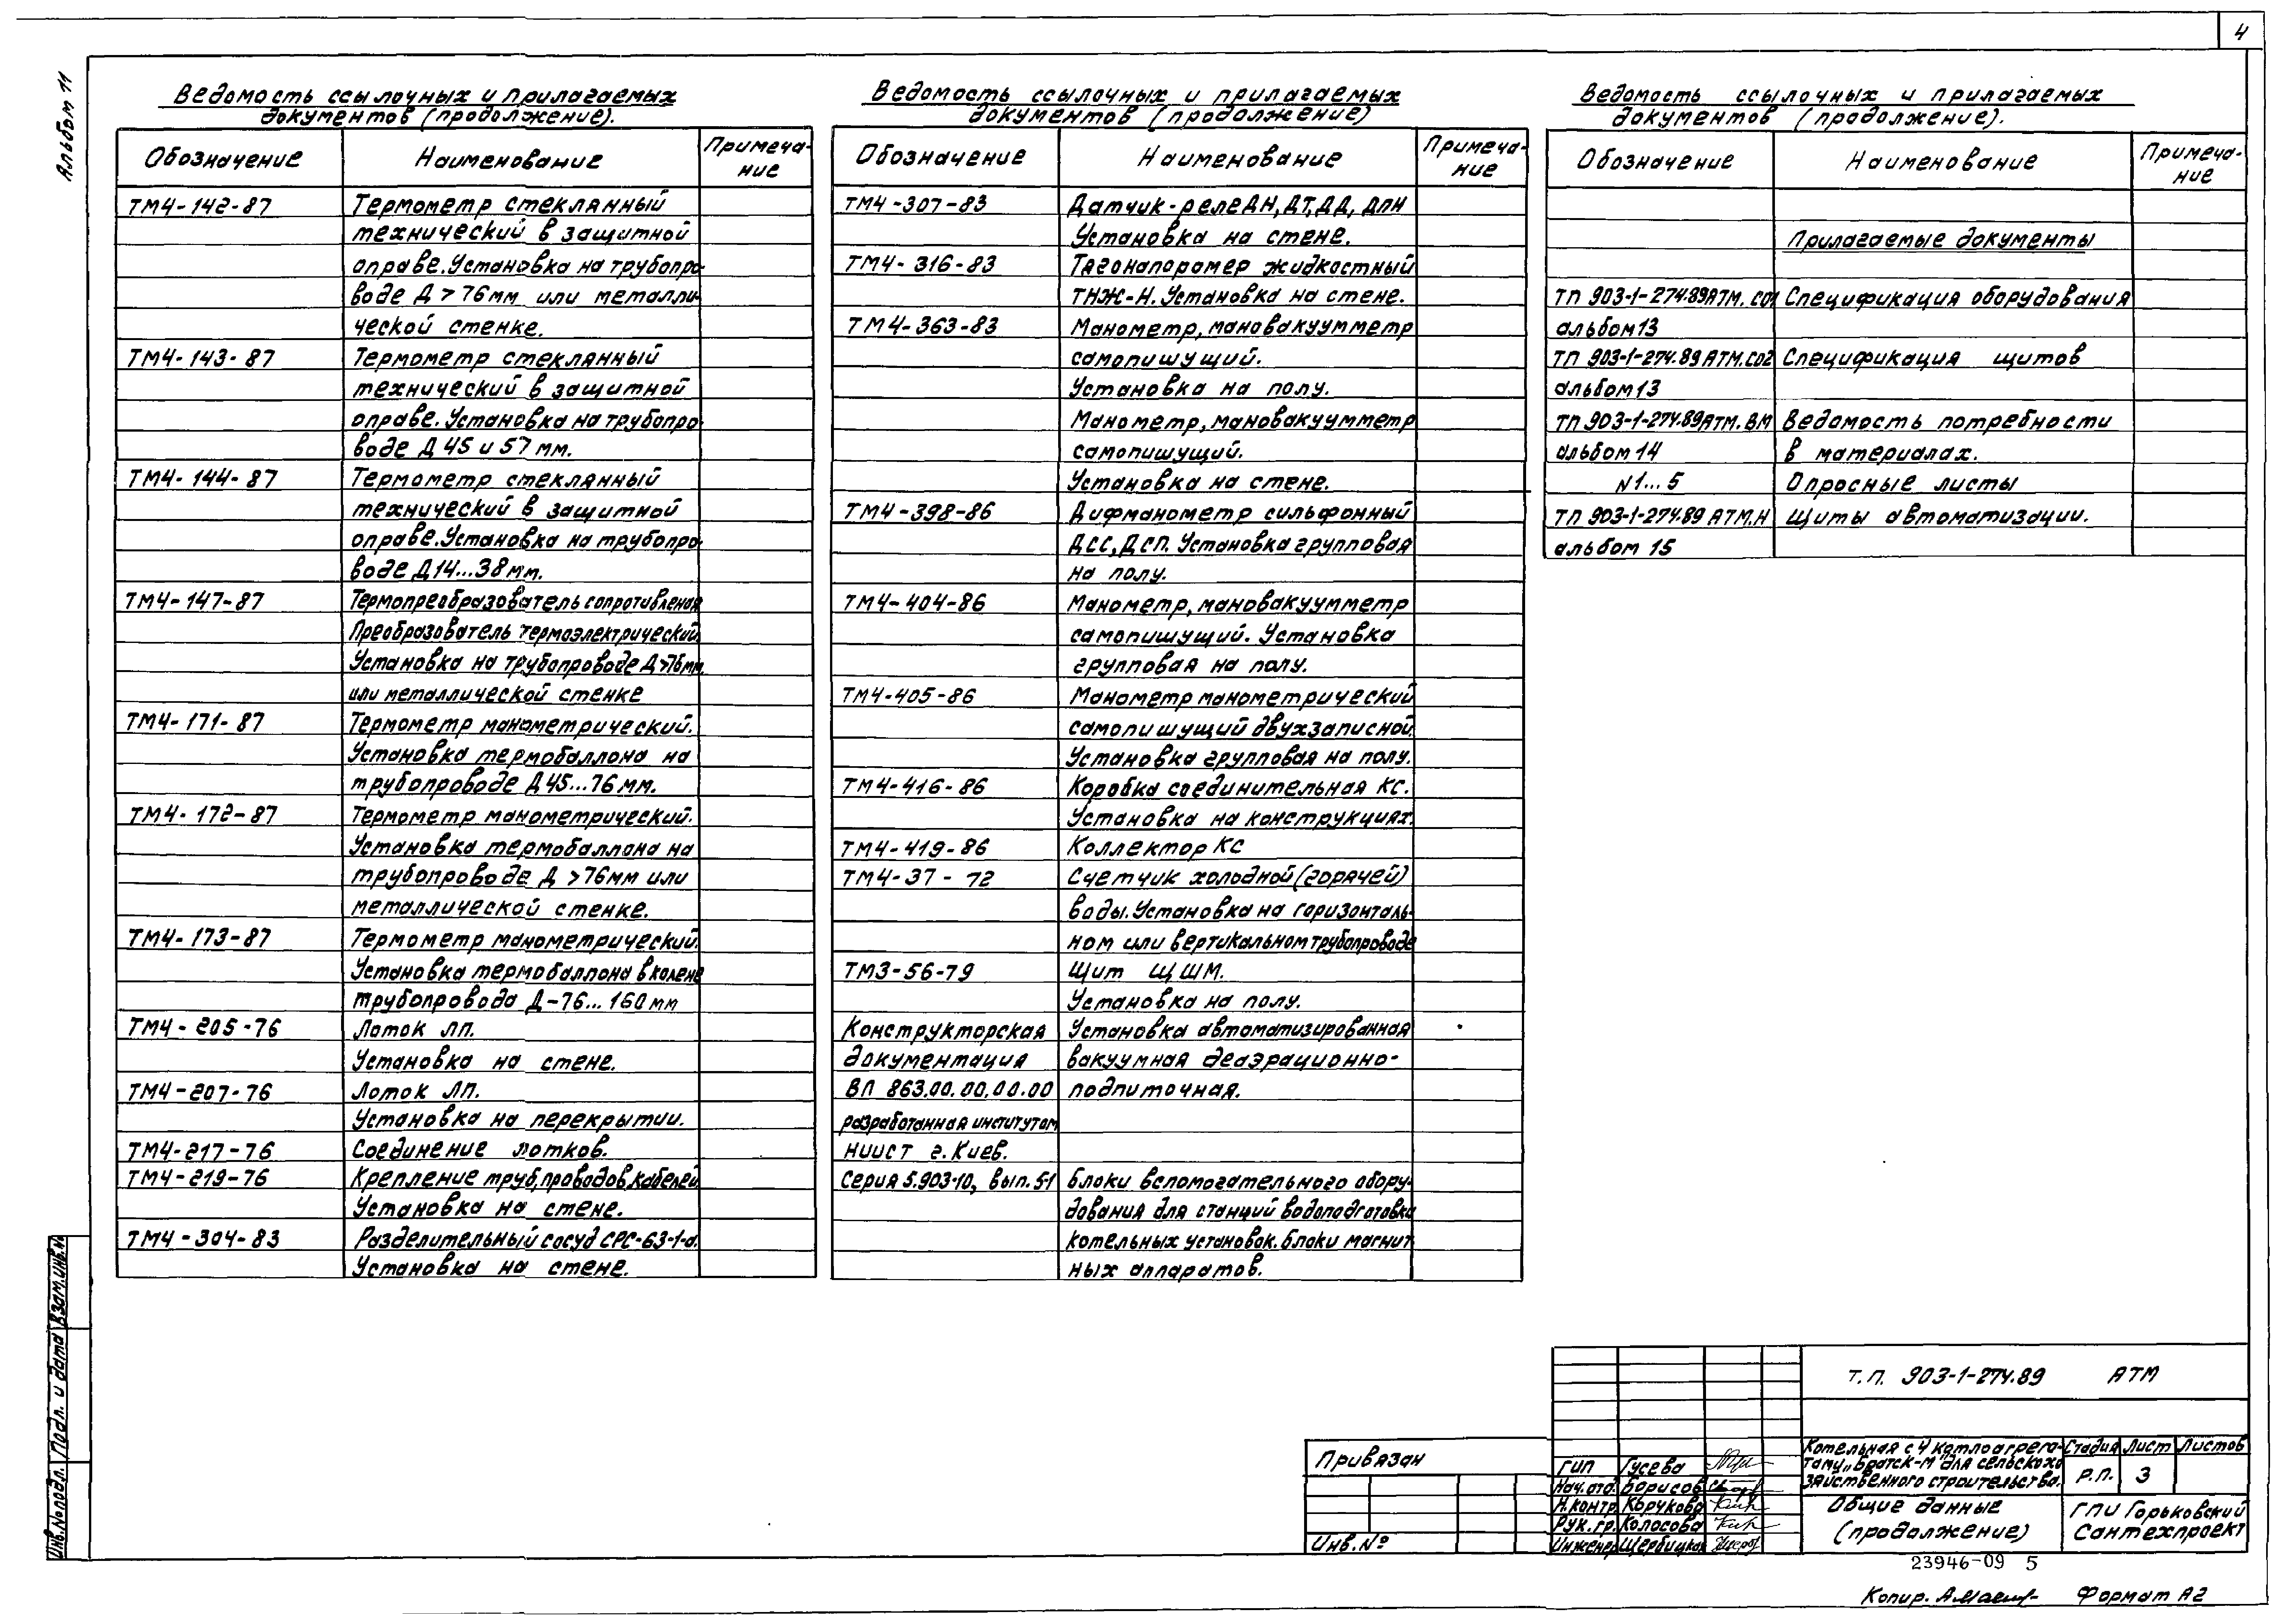 4
Альбом 11
Ведомость ссылочных и прилагаемых
документов (продолжение).
Обозначение Наименование Примеча-
ние
ТМ4-142-87 Термометр стеклянный
технический в защитной
оправе. Установка на трубопро-
воде Д > 76мм или металли-
ческой стенке.
ТМ4-143-87 Термометр стеклянный
технический в защитной
оправе. Установка на трубопро-
воде Д 45 и 57 мм.
ТМ4-144-87 Термометр стеклянный
технический в защитной
оправе. Установка на трубопро-
воде Д 14...38 мм.
ТМ4-147-87 Термопреобразователь сопротивления
Преобразователь термоэлектрический.
Установка на трубопроводе Д>76мм.
или металлической стенке
ТМ4-171-87 Термометр манометрический.
Установка термобаллона на
трубопроводе Д 45...76 мм.
ТМ4-172-87 Термометр манометрический.
Установка термобаллона на
трубопроводе Д >76мм или
металлической стенке.
ТМ4-173-87 Термометр манометрический.
Установка термобаллона в колене
трубопровода Д-76...160 мм
ТМ4-205-76 Лоток ЛП.
Установка на стене.
ТМ4-207-76 Лоток ЛП.
Установка на перекрытии.
ТМ4-217-76 Соединение лотков.
ТМ4-219-76 Крепление труб, проводов, кабелей
Установка на стене.
ТМ4-304-83 Разделительный сосуд СРС-63-1-а.
Установка на стене.
Ведомость ссылочных и прилагаемых
документов (продолжение)
Обозначение Наименование Примеча-
ние
ТМ4-307-83 Датчик-реле ДН, ДТ, ДД, ДПН
Установка на стене.
ТМ4-316-83 Тягонапоромер жидкостный
ТНЖ-Н. Установка на стене.
ТМ4-363-83 Манометр, мановакуумметр
самопишущий.
Установка на полу.
Манометр, мановакуумметр
самопишущий.
Установка на стене.
ТМ4-398-86 Дифманометр сильфонный
ДСС, ДСП. Установка групповая
на полу.
ТМ4-404-86 Манометр, мановакуумметр
самопишущий. Установка
групповая на полу.
ТМ4-405-86 Манометр манометрический
самопишущий двухзаписной.
Установка групповая на полу.
ТМ4-416-86 Коробка соединительная КС.
Установка на конструкциях.
ТМ4-419-86 Коллектор КС
ТМ4-37-72 Счетчик холодной (горячей)
воды. Установка на горизонталь-
ном или вертикальном трубопроводе
ТМ3-56-79 Щит ЩШМ.
Установка на полу.
Конструкторская Установка автоматизированная
документация вакуумная деаэрационно-
ВП 863.00.00.00.00 подпиточная.
разработанная институтом
НИИСТ г. Киев.
Серия 5.903-10, вып. 5-1 Блоки вспомогательного обору-
дования для станций водоподготовки
котельных установок. Блоки магнит
ных аппаратов.
Ведомость ссылочных и прилагаемых
документов (продолжение).
Обозначение Наименование Примеча-
ние
Прилагаемые документы
ТП 903-1-274.89 АТМ. С01 Спецификация оборудования
альбом 13
ТП 903-1-274.89 АТМ. С02 Спецификация щитов
альбом 13
ТП 903-1-274.89 АТМ. ВМ Ведомость потребности
альбом 14 в материалах.
N1...5 Опросные листы
ТП 903-1-274.89 АТМ.Н Щиты автоматизации.
альбом 15
Т.П. 903-1-274.89 АТМ
Котельная с 4 котлоагрега-
тами „Братск-М" для сельскохо
зяйственного строительства.
Стадия Лист Листов
Р.П. 3
Общие данные
(продолжение)
ГПИ Горьковский
Сантехпроект
ГИП Гусева
Нач.отд. Борисов
Н.контр. Крюкова
Рук.гр. Колосова
Инженер
Привязан
Инв.№
Инв.№подл. Подп. и дата Взам.инв.№
23946-09 5
Копир. Формат А2